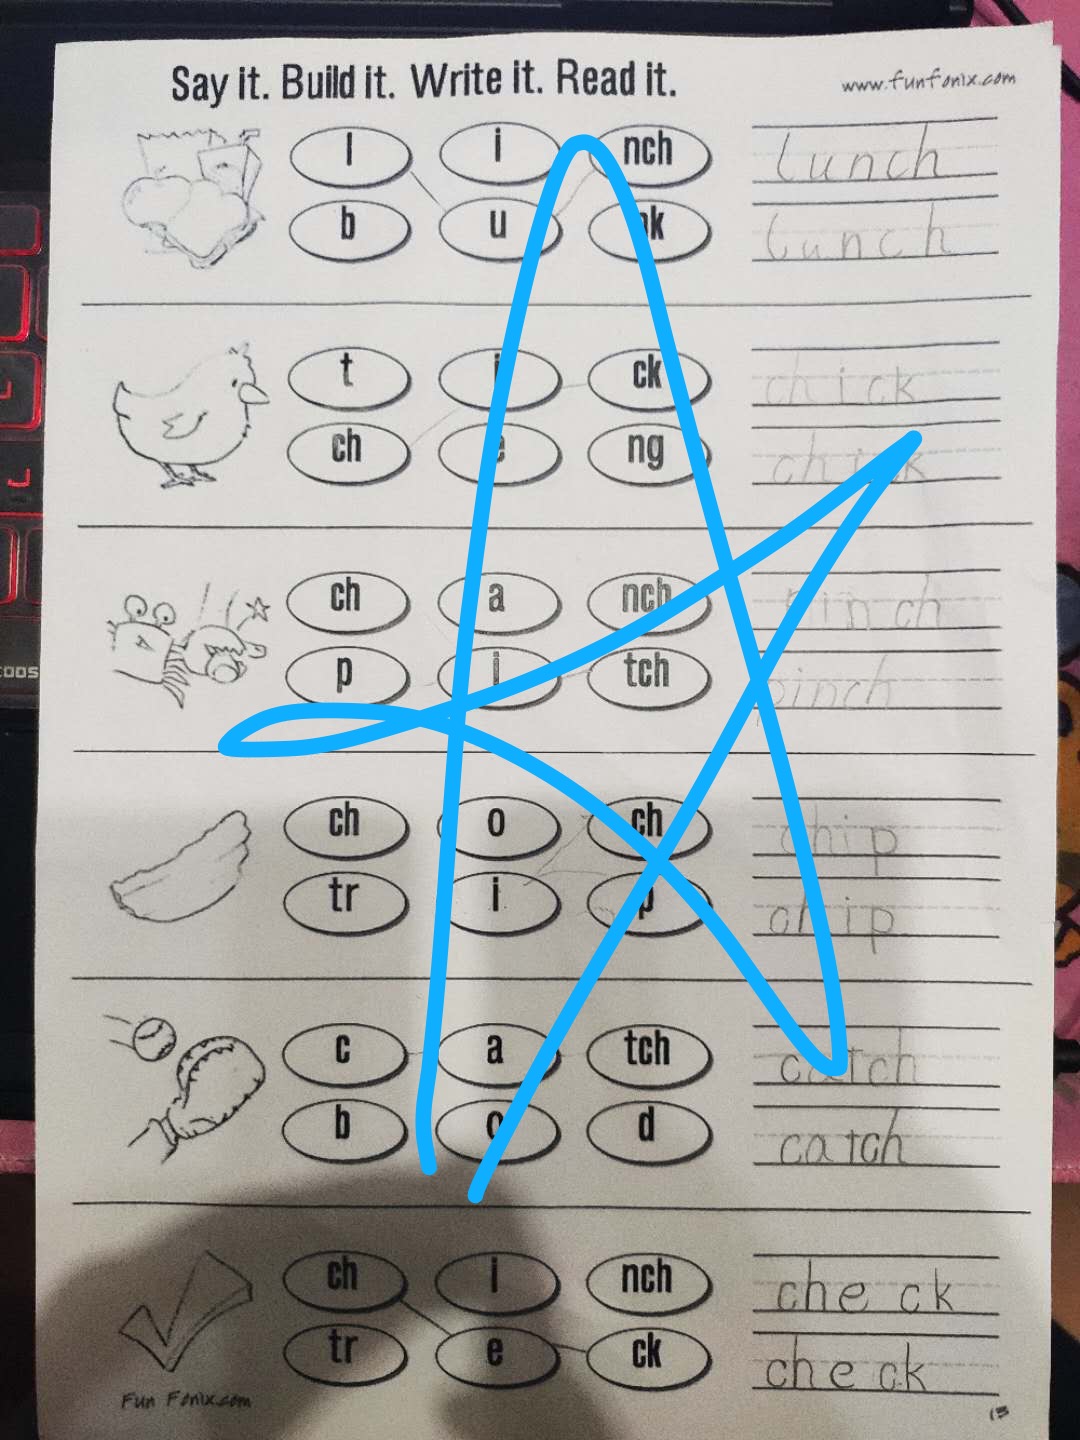 Say it. Build it. Write it. Read it.
www.funfonix.com
l i nch lunch
b u lunch
t i ck chick
ch e ng chick
ch a nch pinch
p i tch pinch
ch o ch chip
tr i p chip
c a tch catch
b o d catch
ch i nch check
tr e ck check
Fun Fonix.com
13